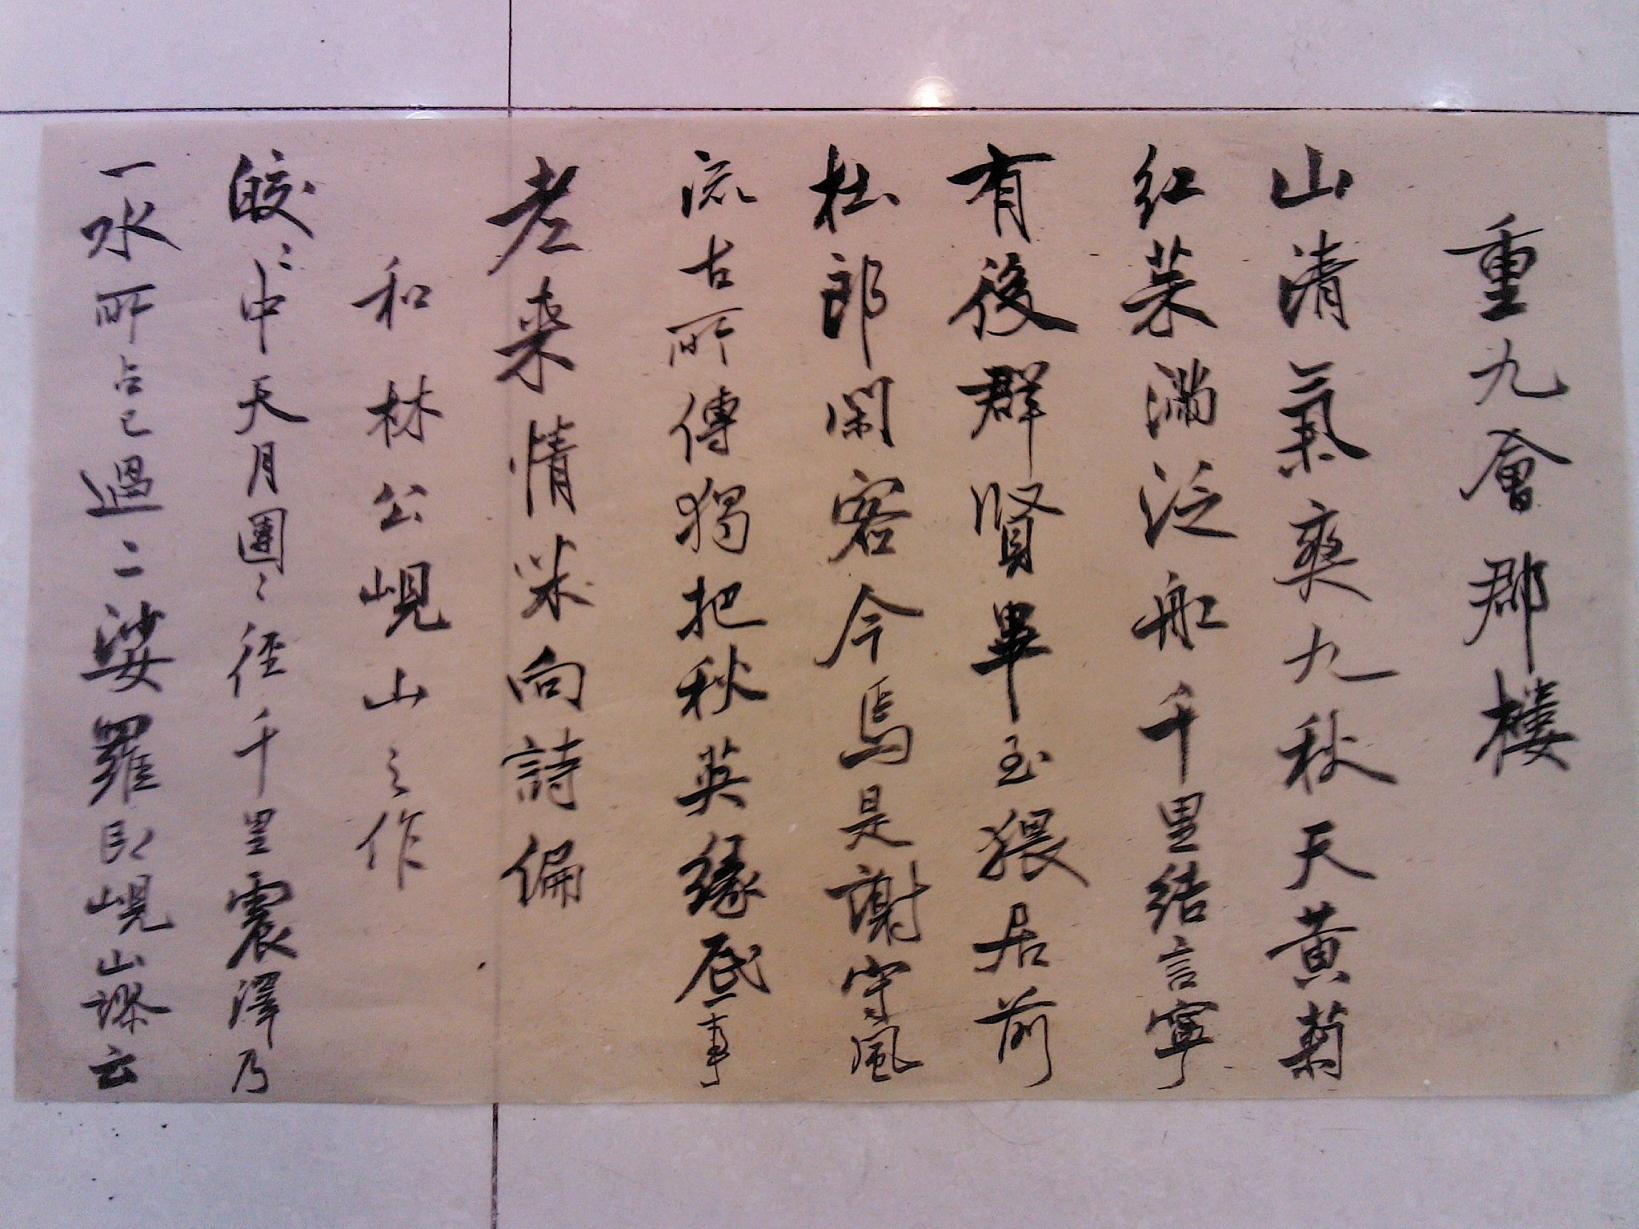 重九會郡樓
山清氣爽九秋天黄菊
紅茱滿泛船千里結言寧
有後群賢畢至猥居前
杜郎閑客今焉是謝守風
流古所傳獨把秋英緣底事
老來情味向詩偏
和林公峴山之作
皎〻中天月團〻徑千里震澤乃
一水所占已過二娑羅即峴山謬云